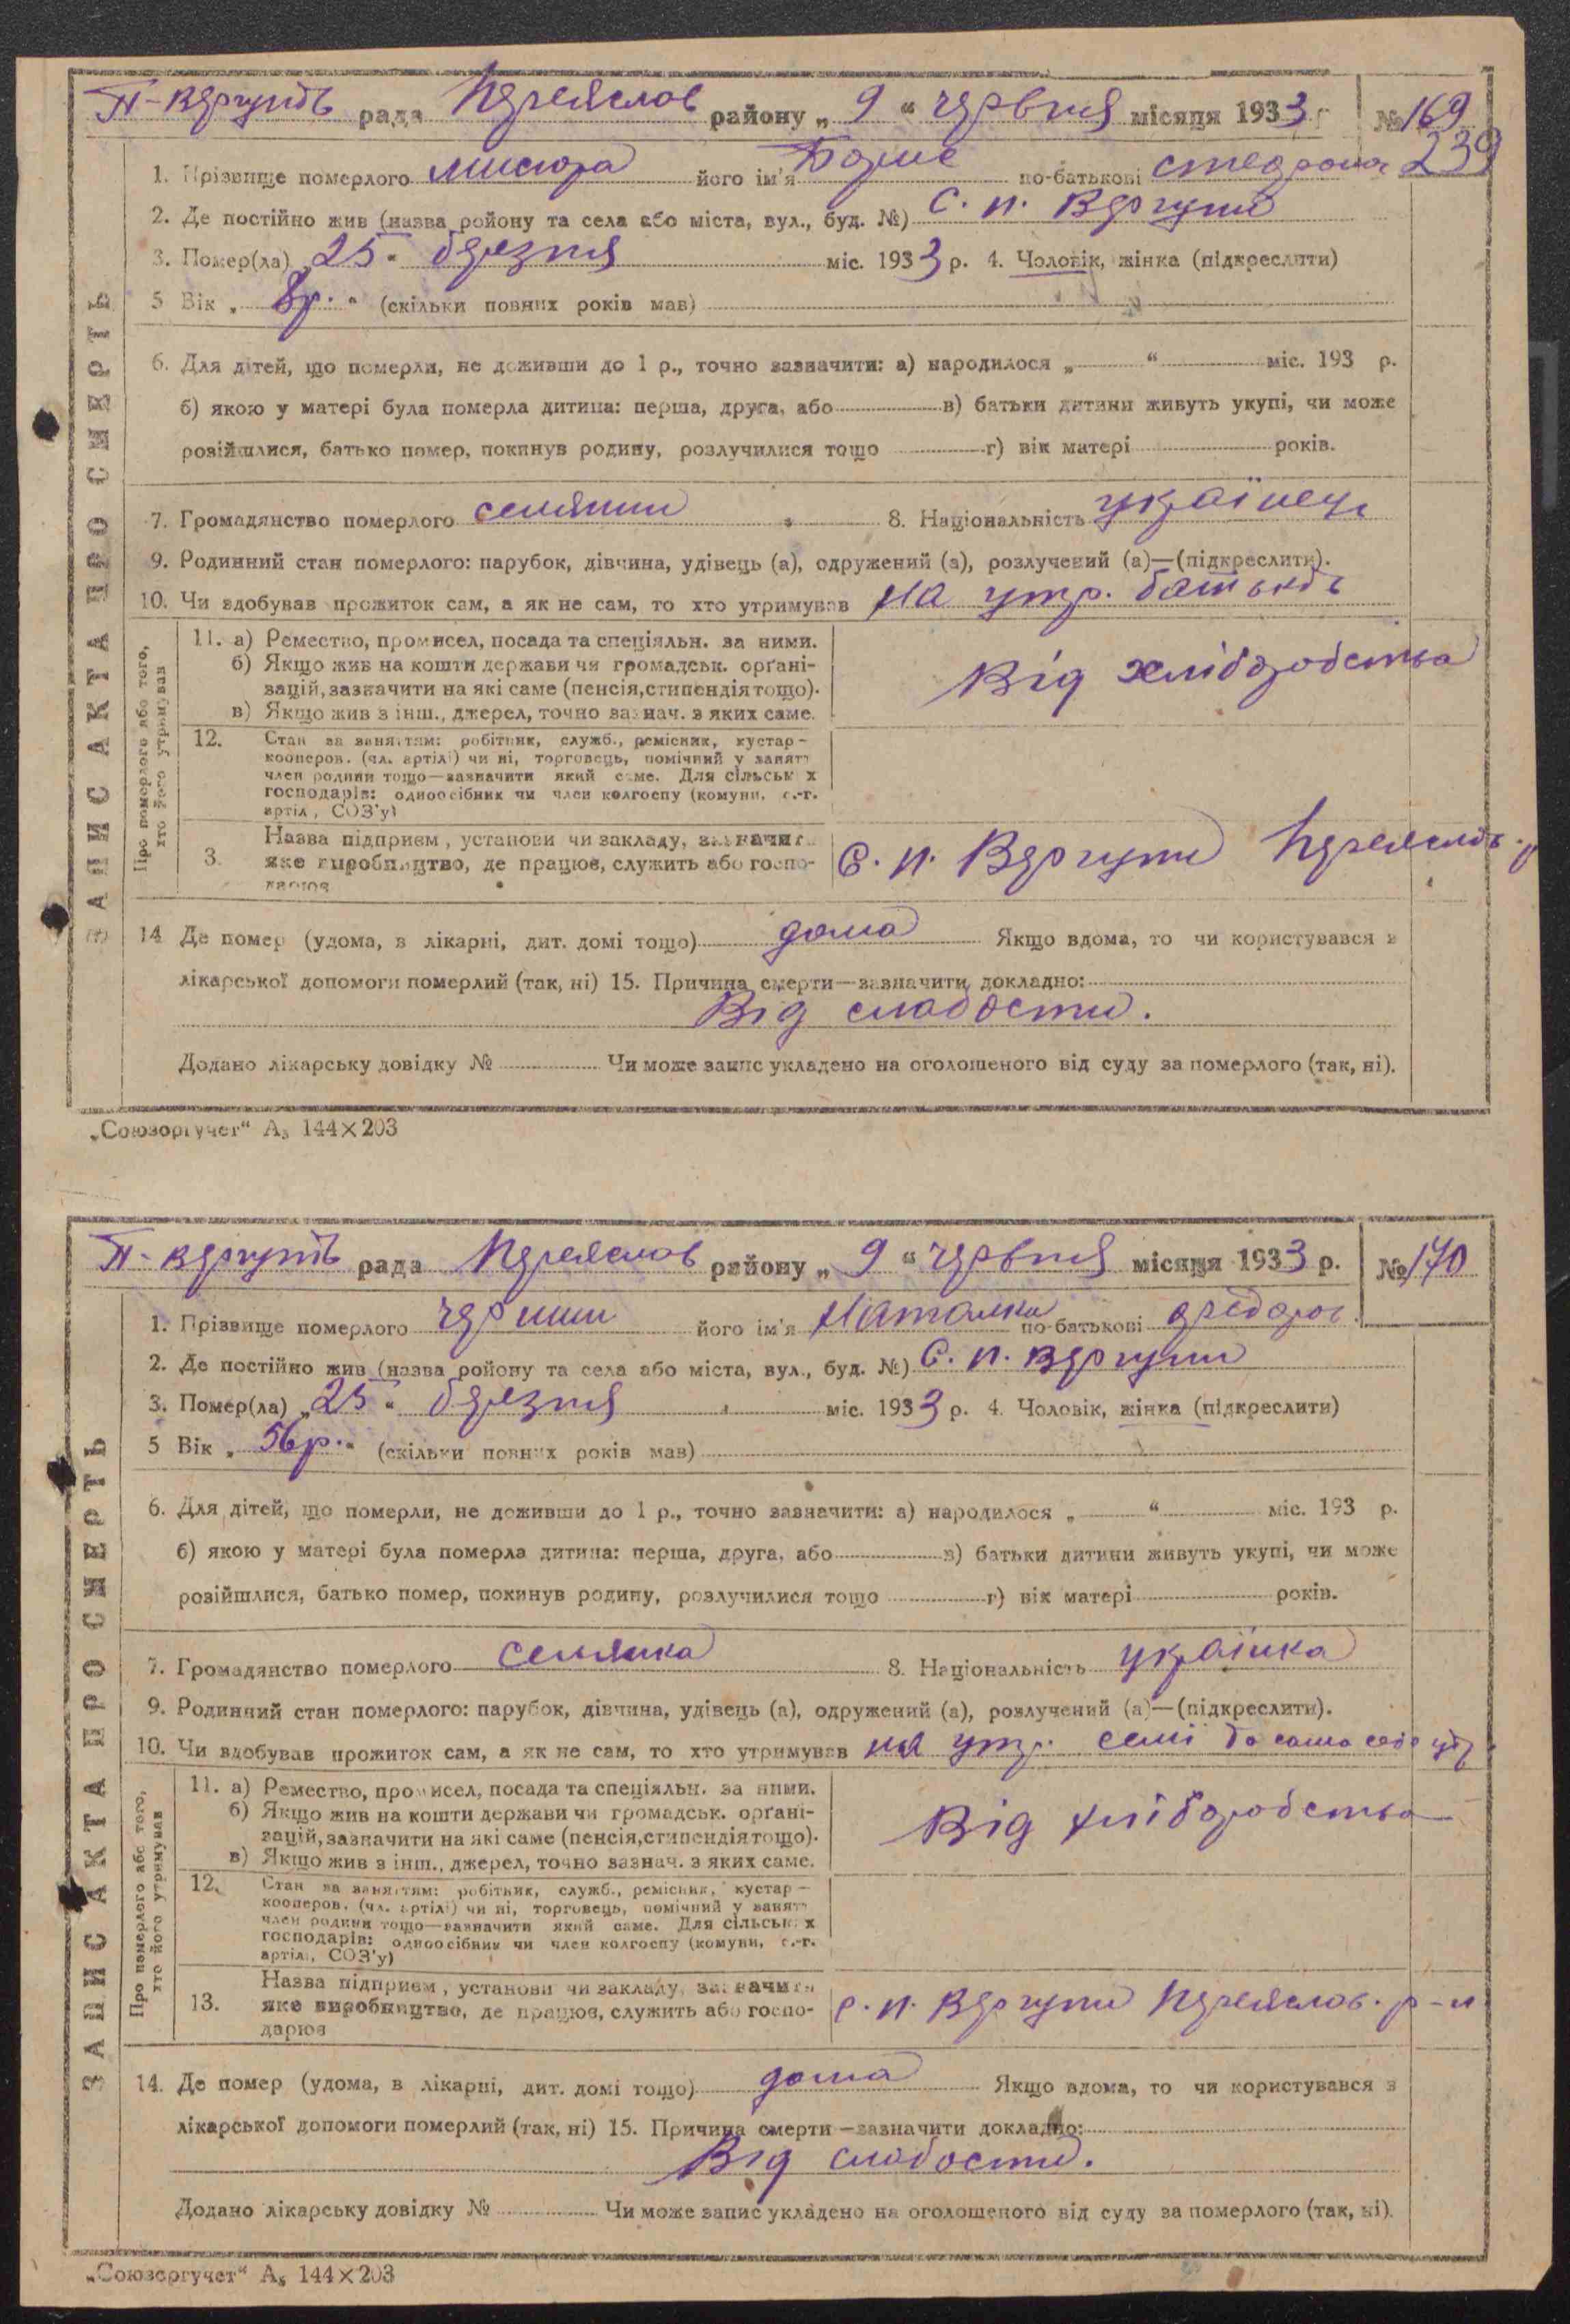 П-Вергунів рада Переяслов району „ 9 “ червня місяця 1933 р № 169
239
1. Прізвище померлого Мисюра його ім'я Борис по-батькові
2. Де постійно жив (назва ройону та села або міста, вул., буд. №) С. П. Вергуни
3. Помер(ла) „ 25 “ березня міс. 1933 р. 4. Чоловік, жінка (підкреслити)
5 Вік „ 8р. “ (скільки повних років мав)
6. Для дітей, що померли, не доживши до 1 р., точно зазначити: а) народилося „ “ міс. 193 р.
б) якою у матері була померла дитина: перша, друга, або в) батьки дитини живуть укупі, чи може
розійшлися, батько помер, покинув родину, розлучилися тощо г) вік матері років.
7. Громадянство померлого селянин 8. Національність українець
9. Родинний стан померлого: парубок, дівчина, удівець (а), одружений (а), розлучений (а)—(підкреслити).
10. Чи здобував прожиток сам, а як не сам, то хто утримував на утр. батьків
ЗАПИС АКТА ПРО СМЕРТЬ
Про померлого або того,
хто його утримував
11. а) Ремество, промисел, посада та спеціяльн. за ними.
б) Якщо жив на кошти держави чи громадськ. орґані-
зацій, зазначити на які саме (пенсія, стипендія тощо).
в) Якщо жив з інш., джерел, точно зазнач. з яких саме.
Від хліборобства
12. Стан за заняттям: робітник, служб., ремісник, кустар—
кооперов. (чл. артілі) чи ні, торговець, помічний у занятт
член родини тощо—зазначити який саме. Для сільськ х
господарів: одноосібник чи член колгоспу (комуни, с.-г.
артіл, СОЗ'у)
3. Назва підприєм, установи чи закладу, зазначити
яке виробництво, де працює, служить або госпо-
дарює
С. П. Вергуни Переяслов. р
14 Де помер (удома, в лікарні, дит. домі тощо) дома Якщо вдома, то чи користувався з
лікарської допомоги померлий (так, ні) 15. Причина смерти—зазначити докладно:
Від слабости.
Додано лікарську довідку № Чи може запис укладено на оголошеного від суду за померлого (так, ні).
„Союзоргучет“ А₅ 144×203
П-Вергунів рада Переяслов району „ 9 “ червня місяця 1933 р. № 170
1. Прізвище померлого його ім'я Наталка по-батькові Федоров.
2. Де постійно жив (назва ройону та села або міста, вул., буд. №) С. П. Вергуни
3. Помер(ла) „ 25 “ березня міс. 1933 р. 4. Чоловік, жінка (підкреслити)
5 Вік „ 56р. “ (скільки повних років мав)
6. Для дітей, що померли, не доживши до 1 р., точно зазначити: а) народилося „ “ міс. 193 р.
б) якою у матері була померла дитина: перша, друга, або в) батьки дитини живуть укупі, чи може
розійшлися, батько помер, покинув родину, розлучилися тощо г) вік матері років.
7. Громадянство померлого селянка 8. Національність українка
9. Родинний стан померлого: парубок, дівчина, удівець (а), одружений (а), розлучений (а)—(підкреслити).
10. Чи здобував прожиток сам, а як не сам, то хто утримував на утр. семї та сама себе утр
ЗАПИС АКТА ПРО СМЕРТЬ
Про померлого або того,
хто його утримував
11. а) Ремество, промисел, посада та спеціяльн. за ними.
б) Якщо жив на кошти держави чи громадськ. орґані-
зацій, зазначити на які саме (пенсія, стипендія тощо).
в) Якщо жив з інш., джерел, точно зазнач. з яких саме.
Від хліборобства
12. Стан за заняттям: робітник, служб., ремісник, кустар—
кооперов. (чл. артілі) чи ні, торговець, помічний у занятт
член родини тощо—зазначити який саме. Для сільськ х
господарів: одноосібник чи член колгоспу (комуни, с.-г.
артіл, СОЗ'у)
13. Назва підприєм, установи чи закладу, зазначити
яке виробництво, де працює, служить або госпо-
дарює
С. П. Вергуни Переяслов. р-н
14. Де помер (удома, в лікарні, дит. домі тощо) дома Якщо вдома, то чи користувався з
лікарської допомоги померлий (так, ні) 15. Причина смерти—зазначити докладно:
Від слабости.
Додано лікарську довідку № Чи може запис укладено на оголошеного від суду за померлого (так, ні).
„Союзоргучет“ А₅ 144×203